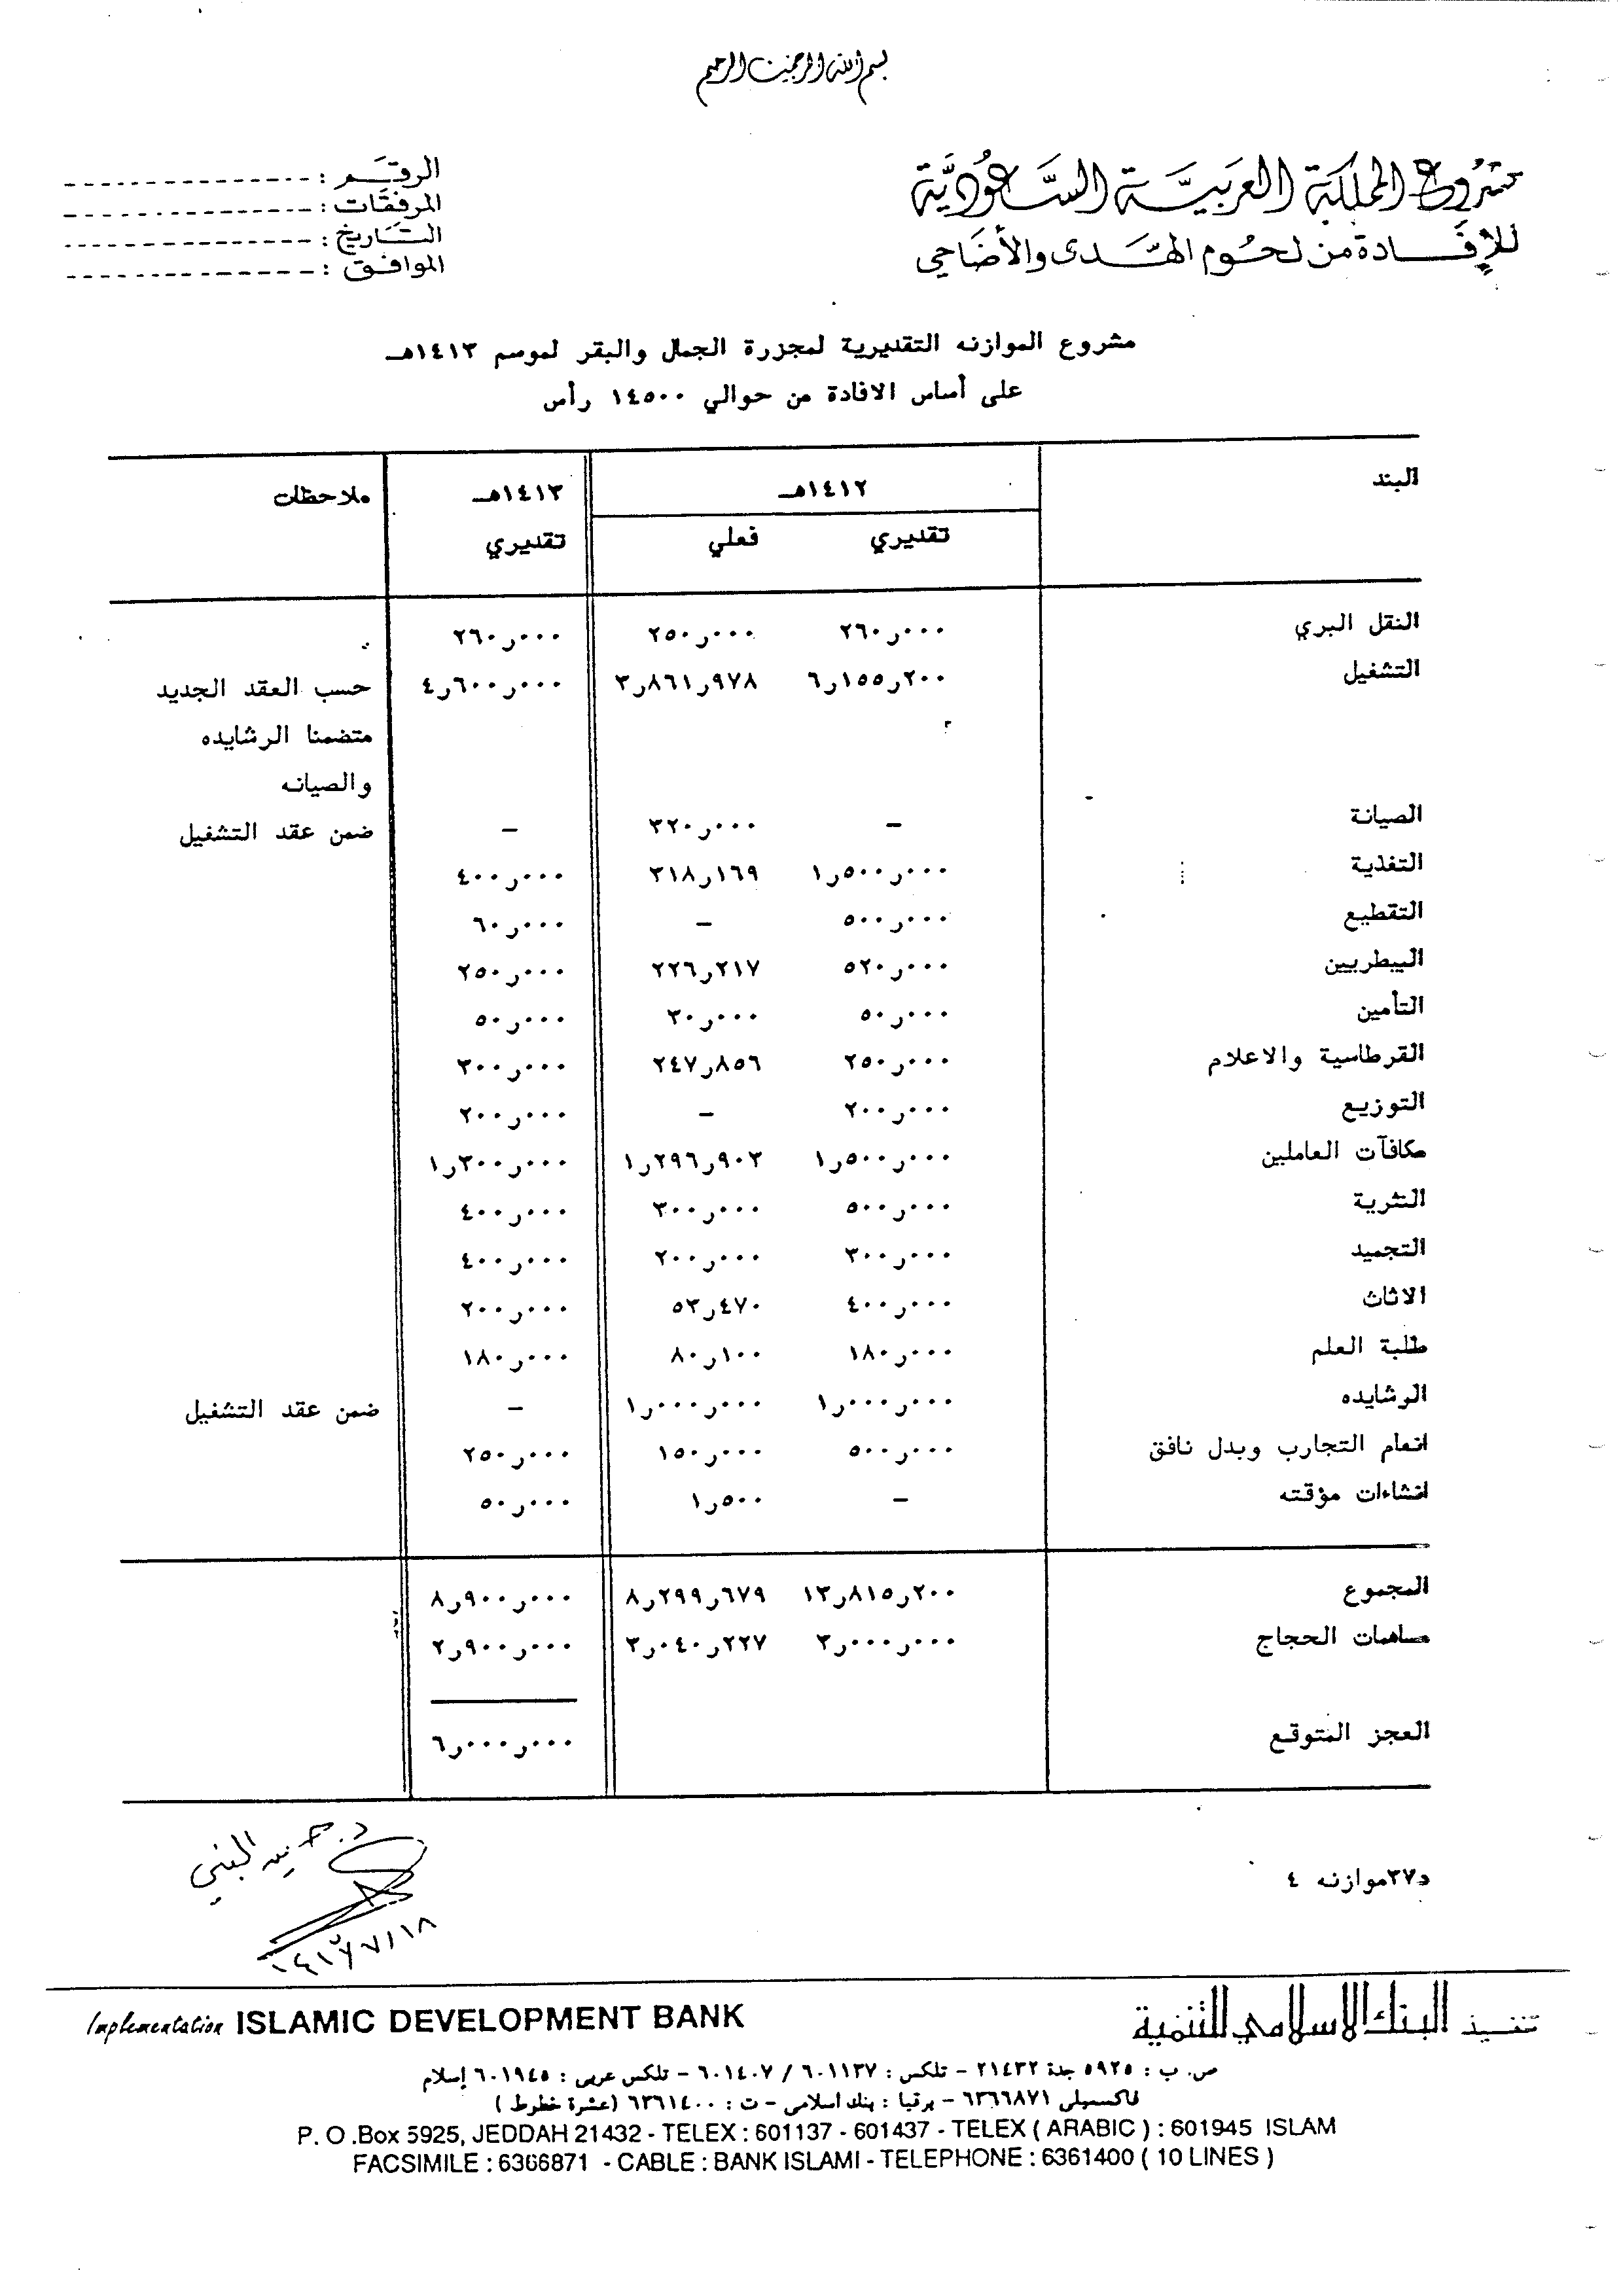 بسم الله الرحمن الرحيم
مشروع المملكة العربية السعودية
للإفادة من لحوم الهدى والأضاحي
الرقم :
المرفقات :
التاريخ :
الموافق :
مشروع الموازنه التقديرية لمجزرة الجمال والبقر لموسم ١٤١٣هـ
على أساس الافادة من حوالي ١٤٥٠٠ رأس
البند ١٤١٢هـ ١٤١٣هـ ملاحظات
تقديري فعلي تقديري
النقل البري ٢٦٠ر٠٠٠ ٢٥٠ر٠٠٠ ٢٦٠ر٠٠٠
التشغيل ٦ر١٥٥ر٢٠٠ ٣ر٨٦١ر٩٧٨ ٤ر٦٠٠ر٠٠٠ حسب العقد الجديد
متضمنا الرشايده
والصيانه
الصيانة – ٣٢٠ر٠٠٠ – ضمن عقد التشغيل
التغذية ١ر٥٠٠ر٠٠٠ ٣١٨ر١٦٩ ٤٠٠ر٠٠٠
التقطيع ٥٠٠ر٠٠٠ – ٦٠ر٠٠٠
البيطريين ٥٢٠ر٠٠٠ ٢٢٦ر٢١٧ ٢٥٠ر٠٠٠
التأمين ٥٠ر٠٠٠ ٣٠ر٠٠٠ ٥٠ر٠٠٠
القرطاسية والاعلام ٢٥٠ر٠٠٠ ٢٤٧ر٨٥٦ ٣٠٠ر٠٠٠
التوزيع ٢٠٠ر٠٠٠ – ٢٠٠ر٠٠٠
مكافآت العاملين ١ر٥٠٠ر٠٠٠ ١ر٢٩٦ر٩٠٣ ١ر٣٠٠ر٠٠٠
النثرية ٥٠٠ر٠٠٠ ٣٠٠ر٠٠٠ ٤٠٠ر٠٠٠
التجميد ٣٠٠ر٠٠٠ ٢٠٠ر٠٠٠ ٤٠٠ر٠٠٠
الاثاث ٤٠٠ر٠٠٠ ٥٣ر٤٧٠ ٢٠٠ر٠٠٠
طلبة العلم ١٨٠ر٠٠٠ ٨٠ر١٠٠ ١٨٠ر٠٠٠
الرشايده ١ر٠٠٠ر٠٠٠ ١ر٠٠٠ر٠٠٠ – ضمن عقد التشغيل
انعام التجارب وبدل نافق ٥٠٠ر٠٠٠ ١٥٠ر٠٠٠ ٢٥٠ر٠٠٠
انشاءات مؤقته – ١ر٥٠٠ ٥٠ر٠٠٠
المجموع ١٣ر٨١٥ر٢٠٠ ٨ر٢٩٩ر٦٧٩ ٨ر٩٠٠ر٠٠٠
مساهمات الحجاج ٣ر٠٠٠ر٠٠٠ ٣ر٠٤٠ر٢٢٧ ٢ر٩٠٠ر٠٠٠
العجز المتوقع ٦ر٠٠٠ر٠٠٠
د٣٧موازنه ٤
تنفيذ البنك الاسلامي للتنمية
Implementation ISLAMIC DEVELOPMENT BANK
ص. ب : ٥٩٢٥ جدة ٢١٤٣٢ – تلكس : ٦٠١١٣٧ / ٦٠١٤٠٧ – تلكس عربى : ٦٠١٩٤٥ إسلام
فاكسميلى ٦٣٦٦٨٧١ – برقيا : بنك اسلامى – ت : ٦٣٦١٤٠٠ (عشرة خطوط )
P. O .Box 5925, JEDDAH 21432 - TELEX : 601137 - 601437 - TELEX ( ARABIC ) : 601945 ISLAM
FACSIMILE : 6366871 - CABLE : BANK ISLAMI - TELEPHONE : 6361400 ( 10 LINES )